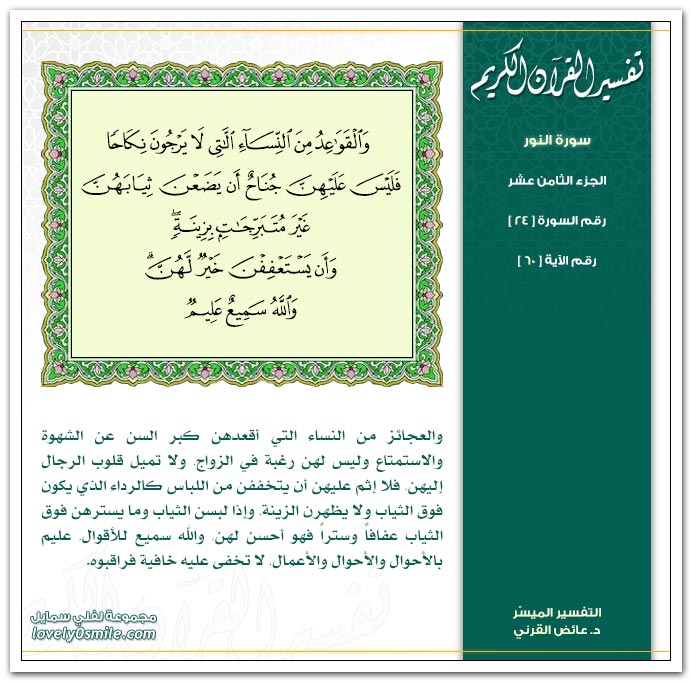 تفسير القرآن الكريم
سورة النور
الجزء الثامن عشر
رقم السورة [ ٢٤ ]
رقم الآية [ ٦٠ ]
وَٱلْقَوَٰعِدُ مِنَ ٱلنِّسَآءِ ٱلَّٰتِى لَا يَرْجُونَ نِكَاحًا
فَلَيْسَ عَلَيْهِنَّ جُنَاحٌ أَن يَضَعْنَ ثِيَابَهُنَّ
غَيْرَ مُتَبَرِّجَٰتٍۭ بِزِينَةٍۖ
وَأَن يَسْتَعْفِفْنَ خَيْرٌ لَّهُنَّۗ
وَٱللَّهُ سَمِيعٌ عَلِيمٌ
والعجائز من النساء التي أقعدهن كبر السن عن الشهوة
والاستمتاع وليس لهن رغبة في الزواج، ولا تميل قلوب الرجال
إليهن، فلا إثم عليهن أن يتخففن من اللباس كالرداء الذي يكون
فوق الثياب ولا يظهرن الزينة، وإذا لبسن الثياب وما يسترهن فوق
الثياب عفافاً وستراً فهو أحسن لهن، والله سميع للأقوال، عليم
بالأحوال والأحوال والأعمال، لا تخفى عليه خافية فراقبوه.
تفسير القرآن الكريم
مجموعة لفلي سمايل
lovely0smile.com
التفسير الميسّر
د. عائض القرني